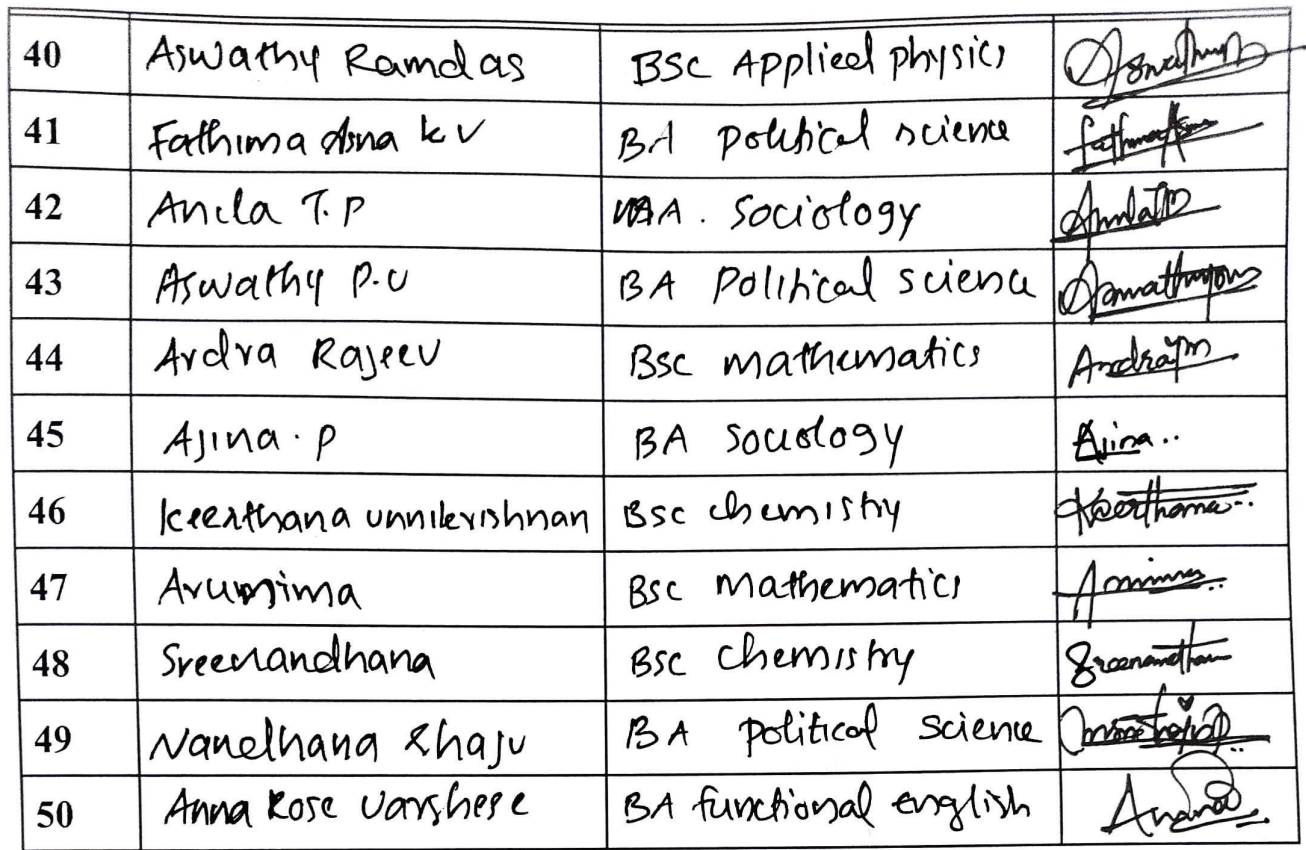 40 Aswathy Ramdas BSC Applied physics
41 Fathima Asna k v BA political science Fathima Asna
42 Anila T.P MA. Sociology
43 Aswathy P.V BA Political science
44 Ardra Rajeev BSC mathematics
45 Ajina. P BA Sociology Ajina..
46 Keerthana unnikrishnan BSC chemistry Keerthana..
47 Arunima BSC Mathematics
48 Sreenandhana BSC Chemistry
49 Nandhana Shaju BA political Science
50 Anna Rose Varghese BA functional english